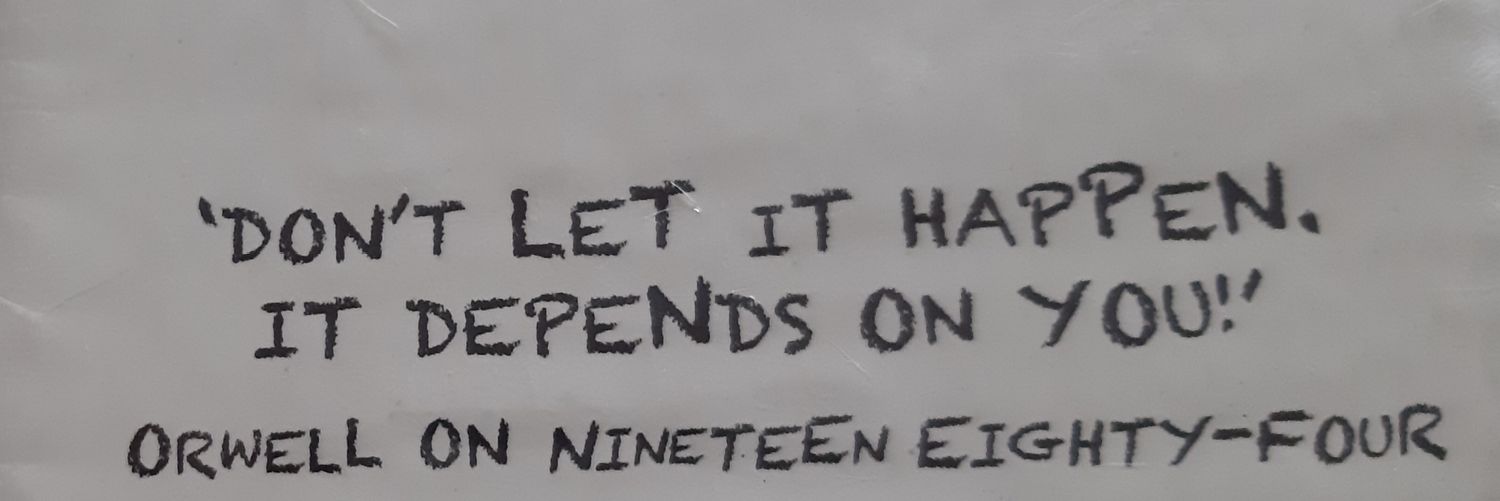 'DON'T LET IT HAPPEN.
IT DEPENDS ON YOU!'
ORWELL ON NINETEEN EIGHTY-FOUR